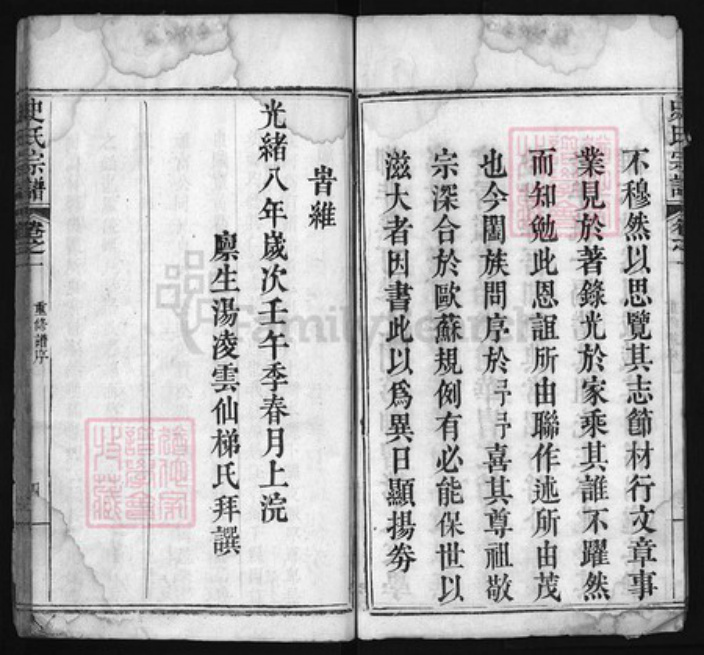 不穆然以思覽其志節材行文章事
業見於著錄光於家乘其誰不躍然
而知勉此恩誼所由聯作述所由茂
也今闔族問序於予予喜其尊祖敬
宗深合於歐蘇規例有必能保世以
滋大者因書此以爲異日顯揚劵
旹維
光緒八年歲次壬午季春月上浣
廪生湯凌雲仙梯氏拜譔
史氏宗譜
卷之一
重修譜序
四
FamilySearch